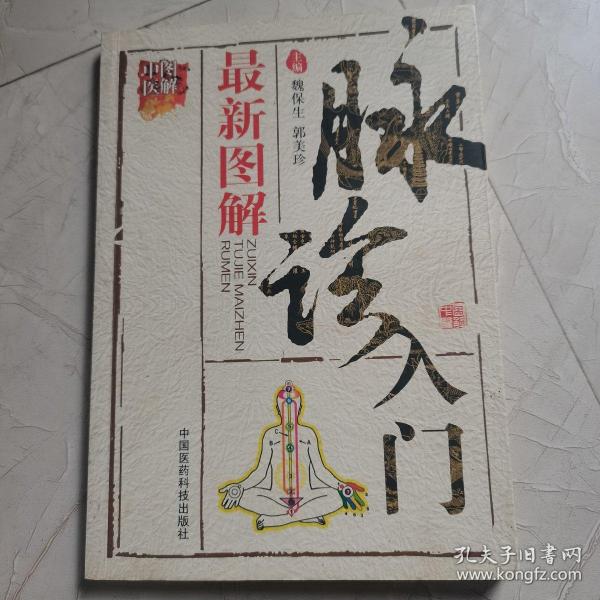 中医
图解
最新图解
ZUIXIN
TUJIE MAIZHEN
RUMEN
主编
魏保生 郭美珍
脉诊入门
中国医药科技出版社
C
B
A
孔夫子旧书网
www.kongfz.com